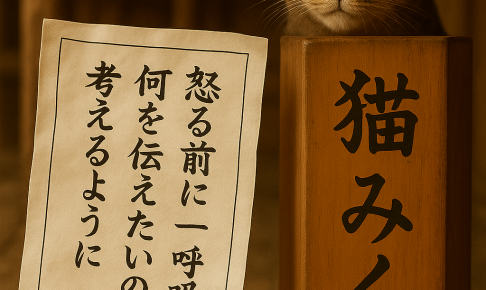 猫みく
怒る前に一呼吸
何を伝えたいの
考えるように